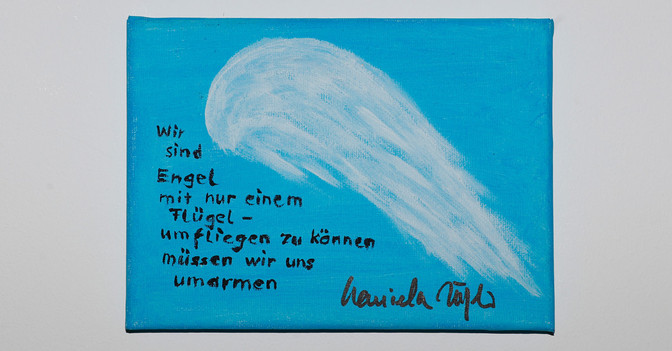 Wir
sind
Engel
mit nur einem
Flügel -
um fliegen zu können
müssen wir uns
umarmen